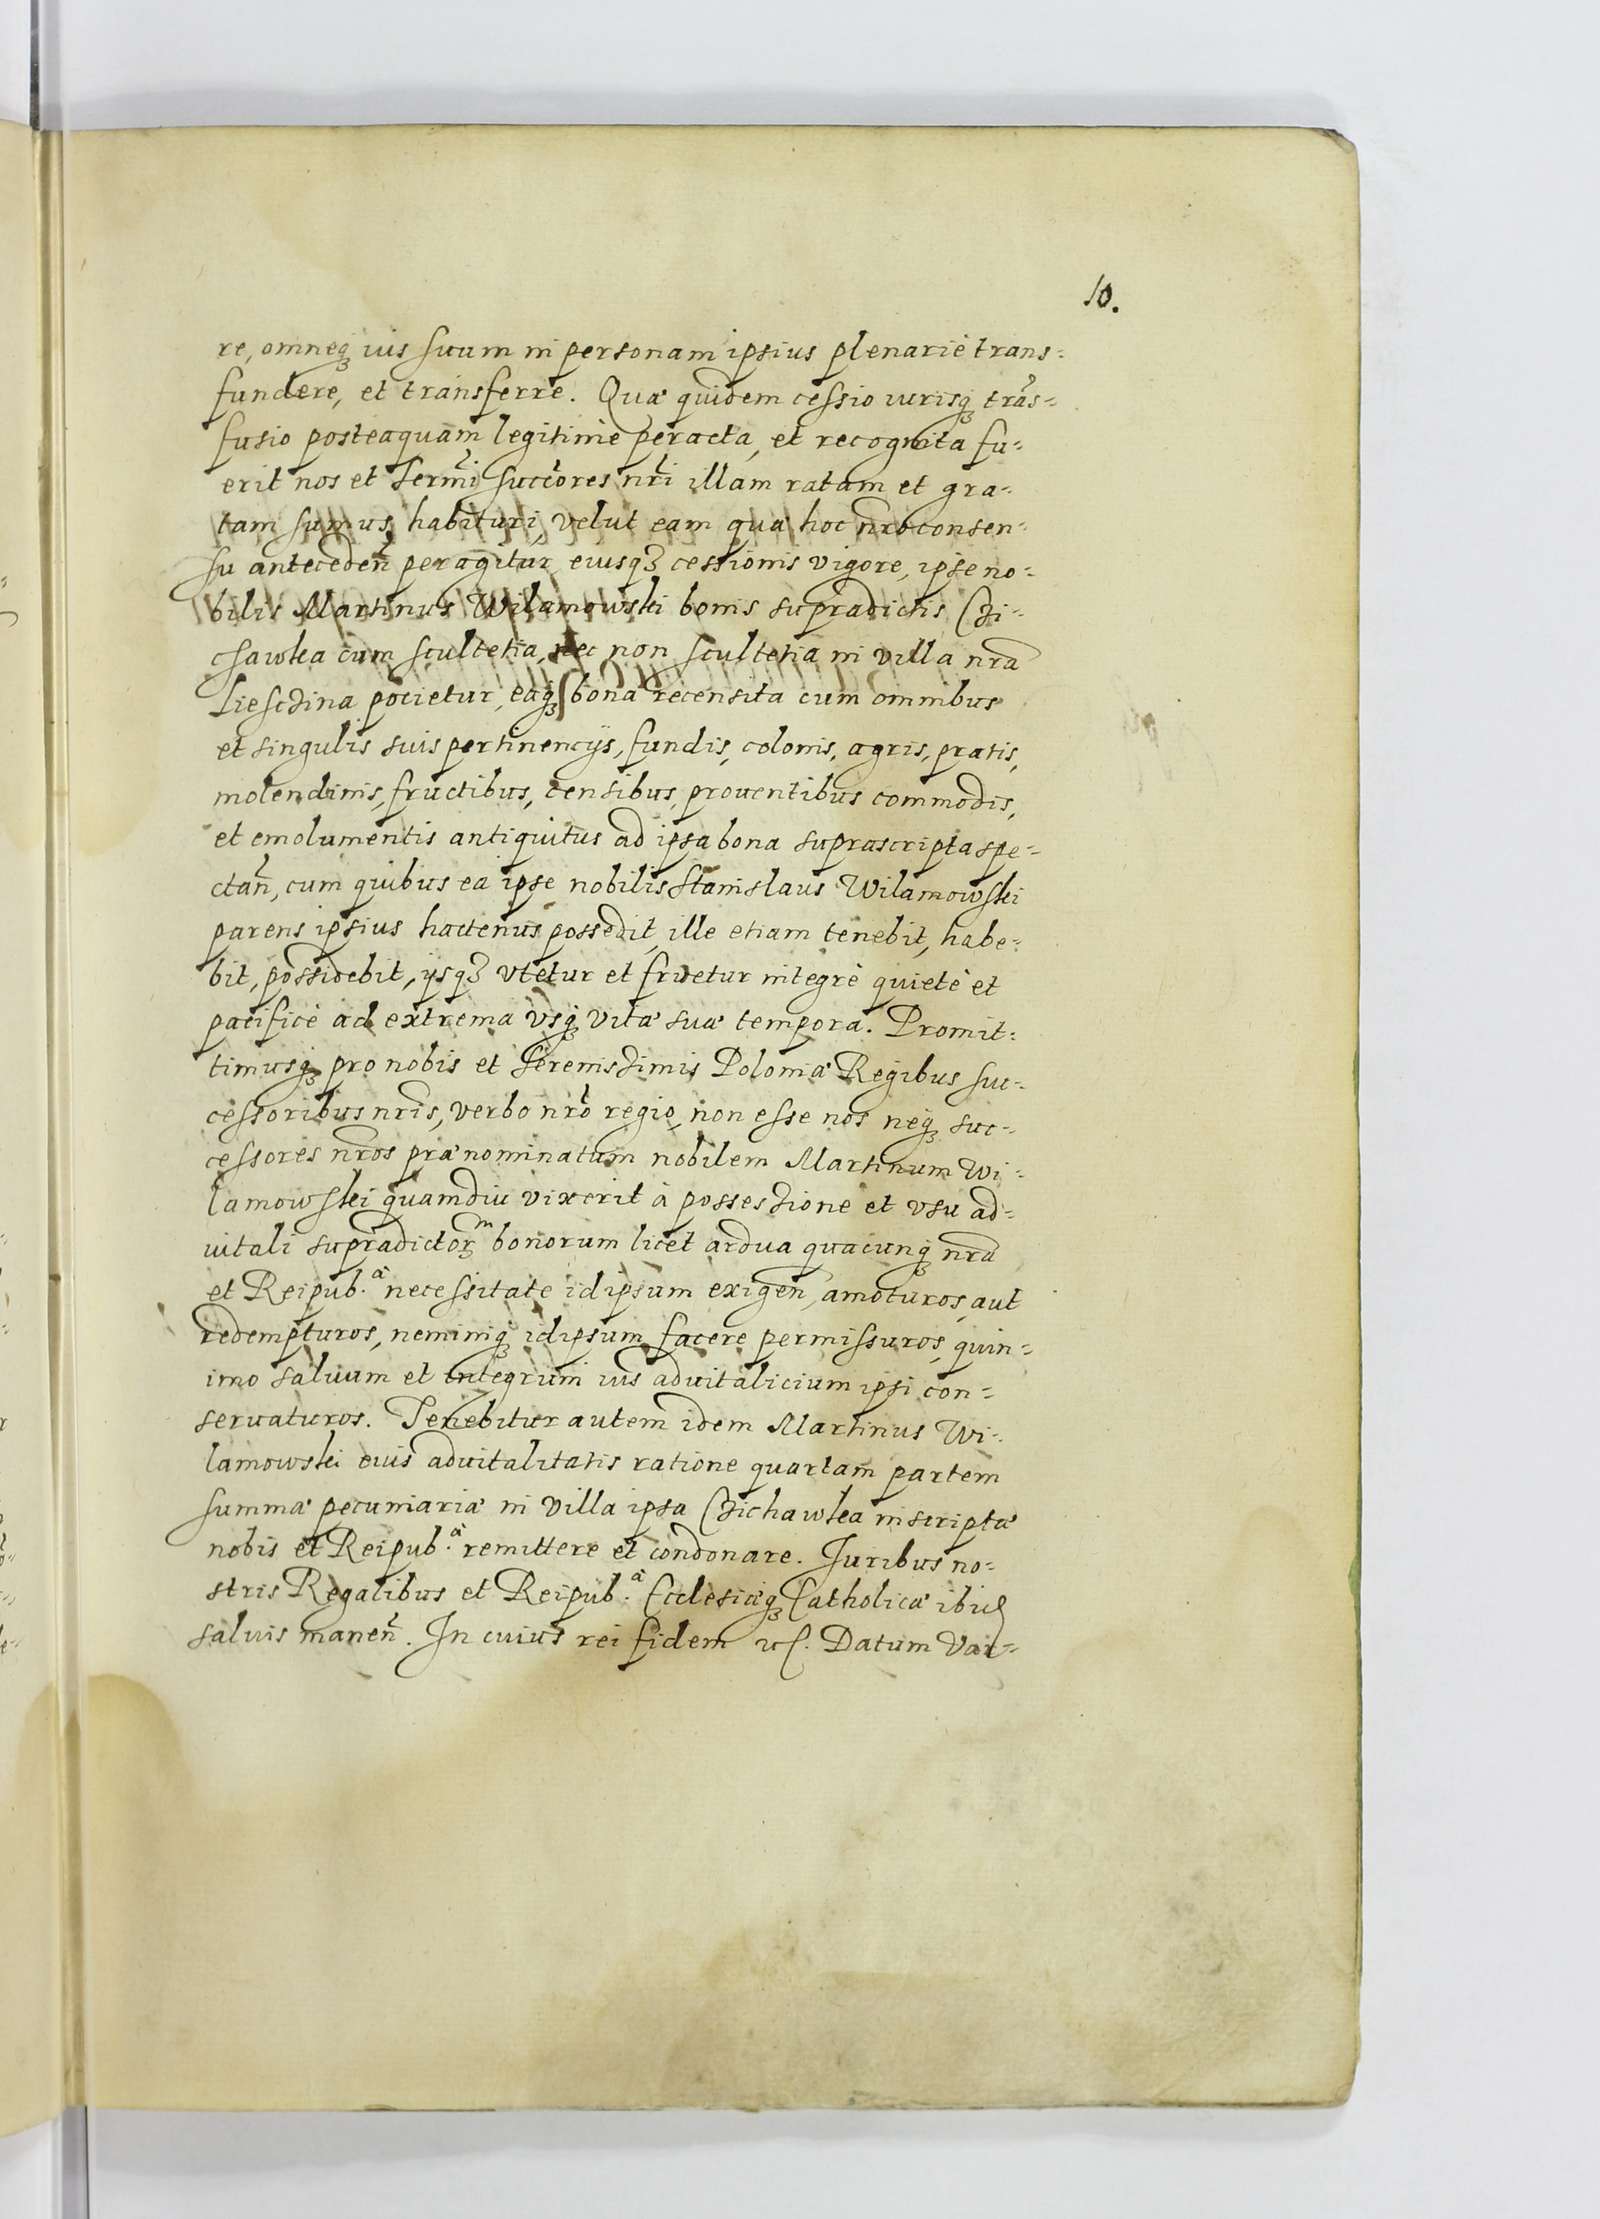 10.
re, omneq3 ius suum in personam ipsius plenariè trans=
fundere, et transferre. Quæ quidem cessio iurisq3 trãs=
fusio posteaquam legitimè peracta, et recognita fu=
erit nos et Sermi succores nri illam ratam et gra=
tam sumus habituri, velut eam quæ hoc nro consen=
su anteceden peragitur, eiusq3 cessionis vigore, ipse no=
bilis Martinus Wilamowski bonis supradictis Czi=
chawka cum scultetia, nec non scultetia in villa nra
Liesczina pocietur, eaq3 bona recensita cum omnibus
et singulis suis pertinencijs, fundis, colonis, agris, pratis,
molendinis, fructibus, censibus, prouentibus commodis,
et emolumentis antiquitus ad ipsa bona suprascripta spe=
ctan, cum quibus ea ipse nobilis Stanislaus Wilamowski
parens ipsius hactenus possedit, ille etiam tenebit, habe=
bit, possidebit, ijsq3 vtetur et fruetur integrè quietè et
pacificè ad extrema vsq3 vitæ suæ tempora. Promit=
timusq3 pro nobis et Serenissimis Poloniæ Regibus suc=
cessoribus nris, verbo nro regio, non esse nos neq3 suc=
cessores nros prænominatum nobilem Martinum Wi=
lamowski quamdiu vixerit à possessione et vsu ad=
uitali supradictorm bonorum licet ardua quacunq3 nra
et Reipub.æ necessitate id ipsum exigen, amoturos, aut
redempturos, neminiq3 id ipsum facere permissuros, quin=
imo saluum et integrum ius aduitalicium ipsi con=
seruaturos. Tenebitur autem idem Martinus Wi=
lamowski eius aduitalitatis ratione quartam partem
summæ pecuniariæ in villa ipsa Czichawka inscriptæ
nobis et Reipub.æ remittere et condonare. Juribus no=
stris Regalibus et Reipub.æ Ecclesiæq3 Catholicæ ibid
saluis manen. In cuius rei fidem etc. Datum Var=